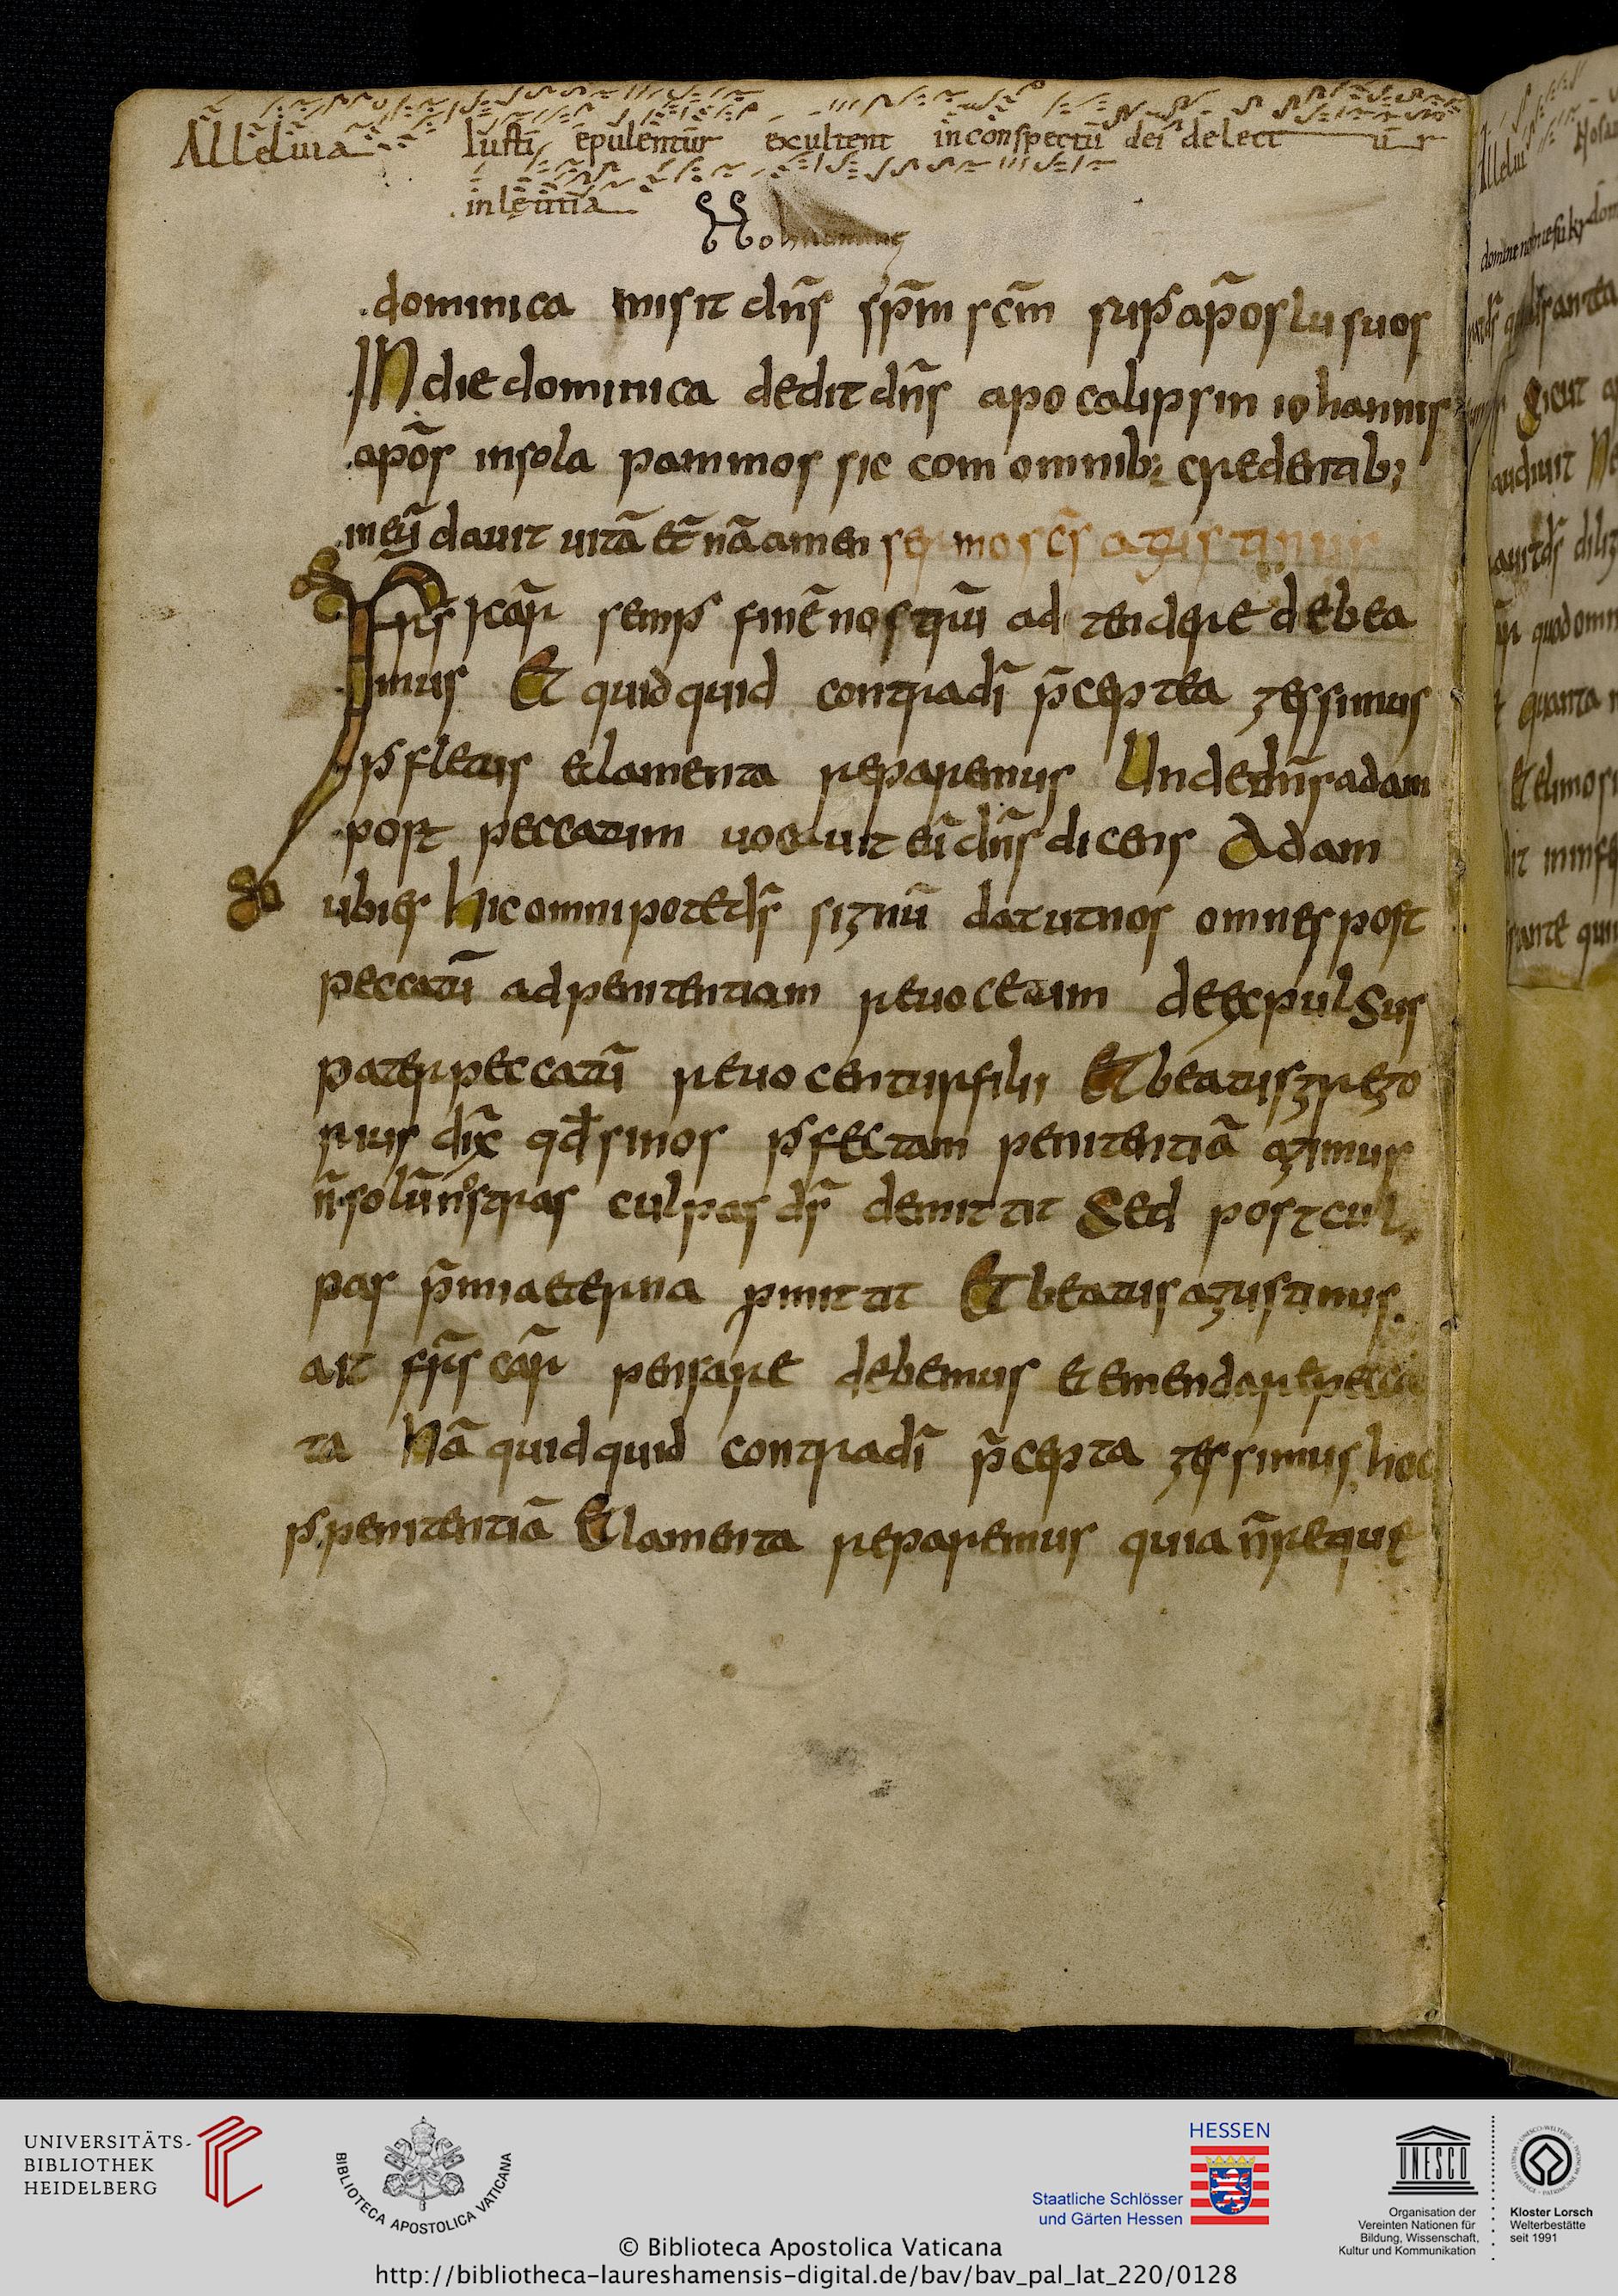 Alleluia Iusti epulentur exultent inconspectu dei delect u r
inletitia
dominica misit dn̄s sp̄m sc̄m sup ap̄oslu suos
In die dominica dedit dn̄s apocalipsin iohannis
apōs insola pammos sic com omnib; credentib;
ineū davit vitā et̄nā amen sermo sc̄s agustinus
Fr̄s kar̄ semp finē nostrum̄ ad tendere debea
mus Et quidquid contradī p̄ceptea gessimus
p fletus et lamenta reparemus Unde dn̄s adam
post peccatum vocavit eū dn̄s dicens Adam
ubi es hic omnipotet ds̄ signū dat ut nos omnes post
peccatū ad penitentiam revocetum de expulsus
pater peccatū revocentur filii Et beatus grego
rius dix̄ qd si nos pfectam penitentiā agimus
n̄ solū nostras culpas ds̄ demittit Sed post cul
pas p̄mia eterna pmittit Et beatus agustinus
ait fr̄s car̄ pensare debemus et emendare pecca
ta Nā quidquid contradī p̄cepta gessimus hoc
p penitentiā Et lamenta reparemus quia n̄ reque
UNIVERSITÄTS-
BIBLIOTHEK
HEIDELBERG
BIBLIOTECA APOSTOLICA VATICANA
HESSEN
Staatliche Schlösser
und Gärten Hessen
UNESCO
Organisation der
Vereinten Nationen für
Bildung, Wissenschaft,
Kultur und Kommunikation
Kloster Lorsch
Welterbestätte
seit 1991
© Biblioteca Apostolica Vaticana
http://bibliotheca-laureshamensis-digital.de/bav/bav_pal_lat_220/0128